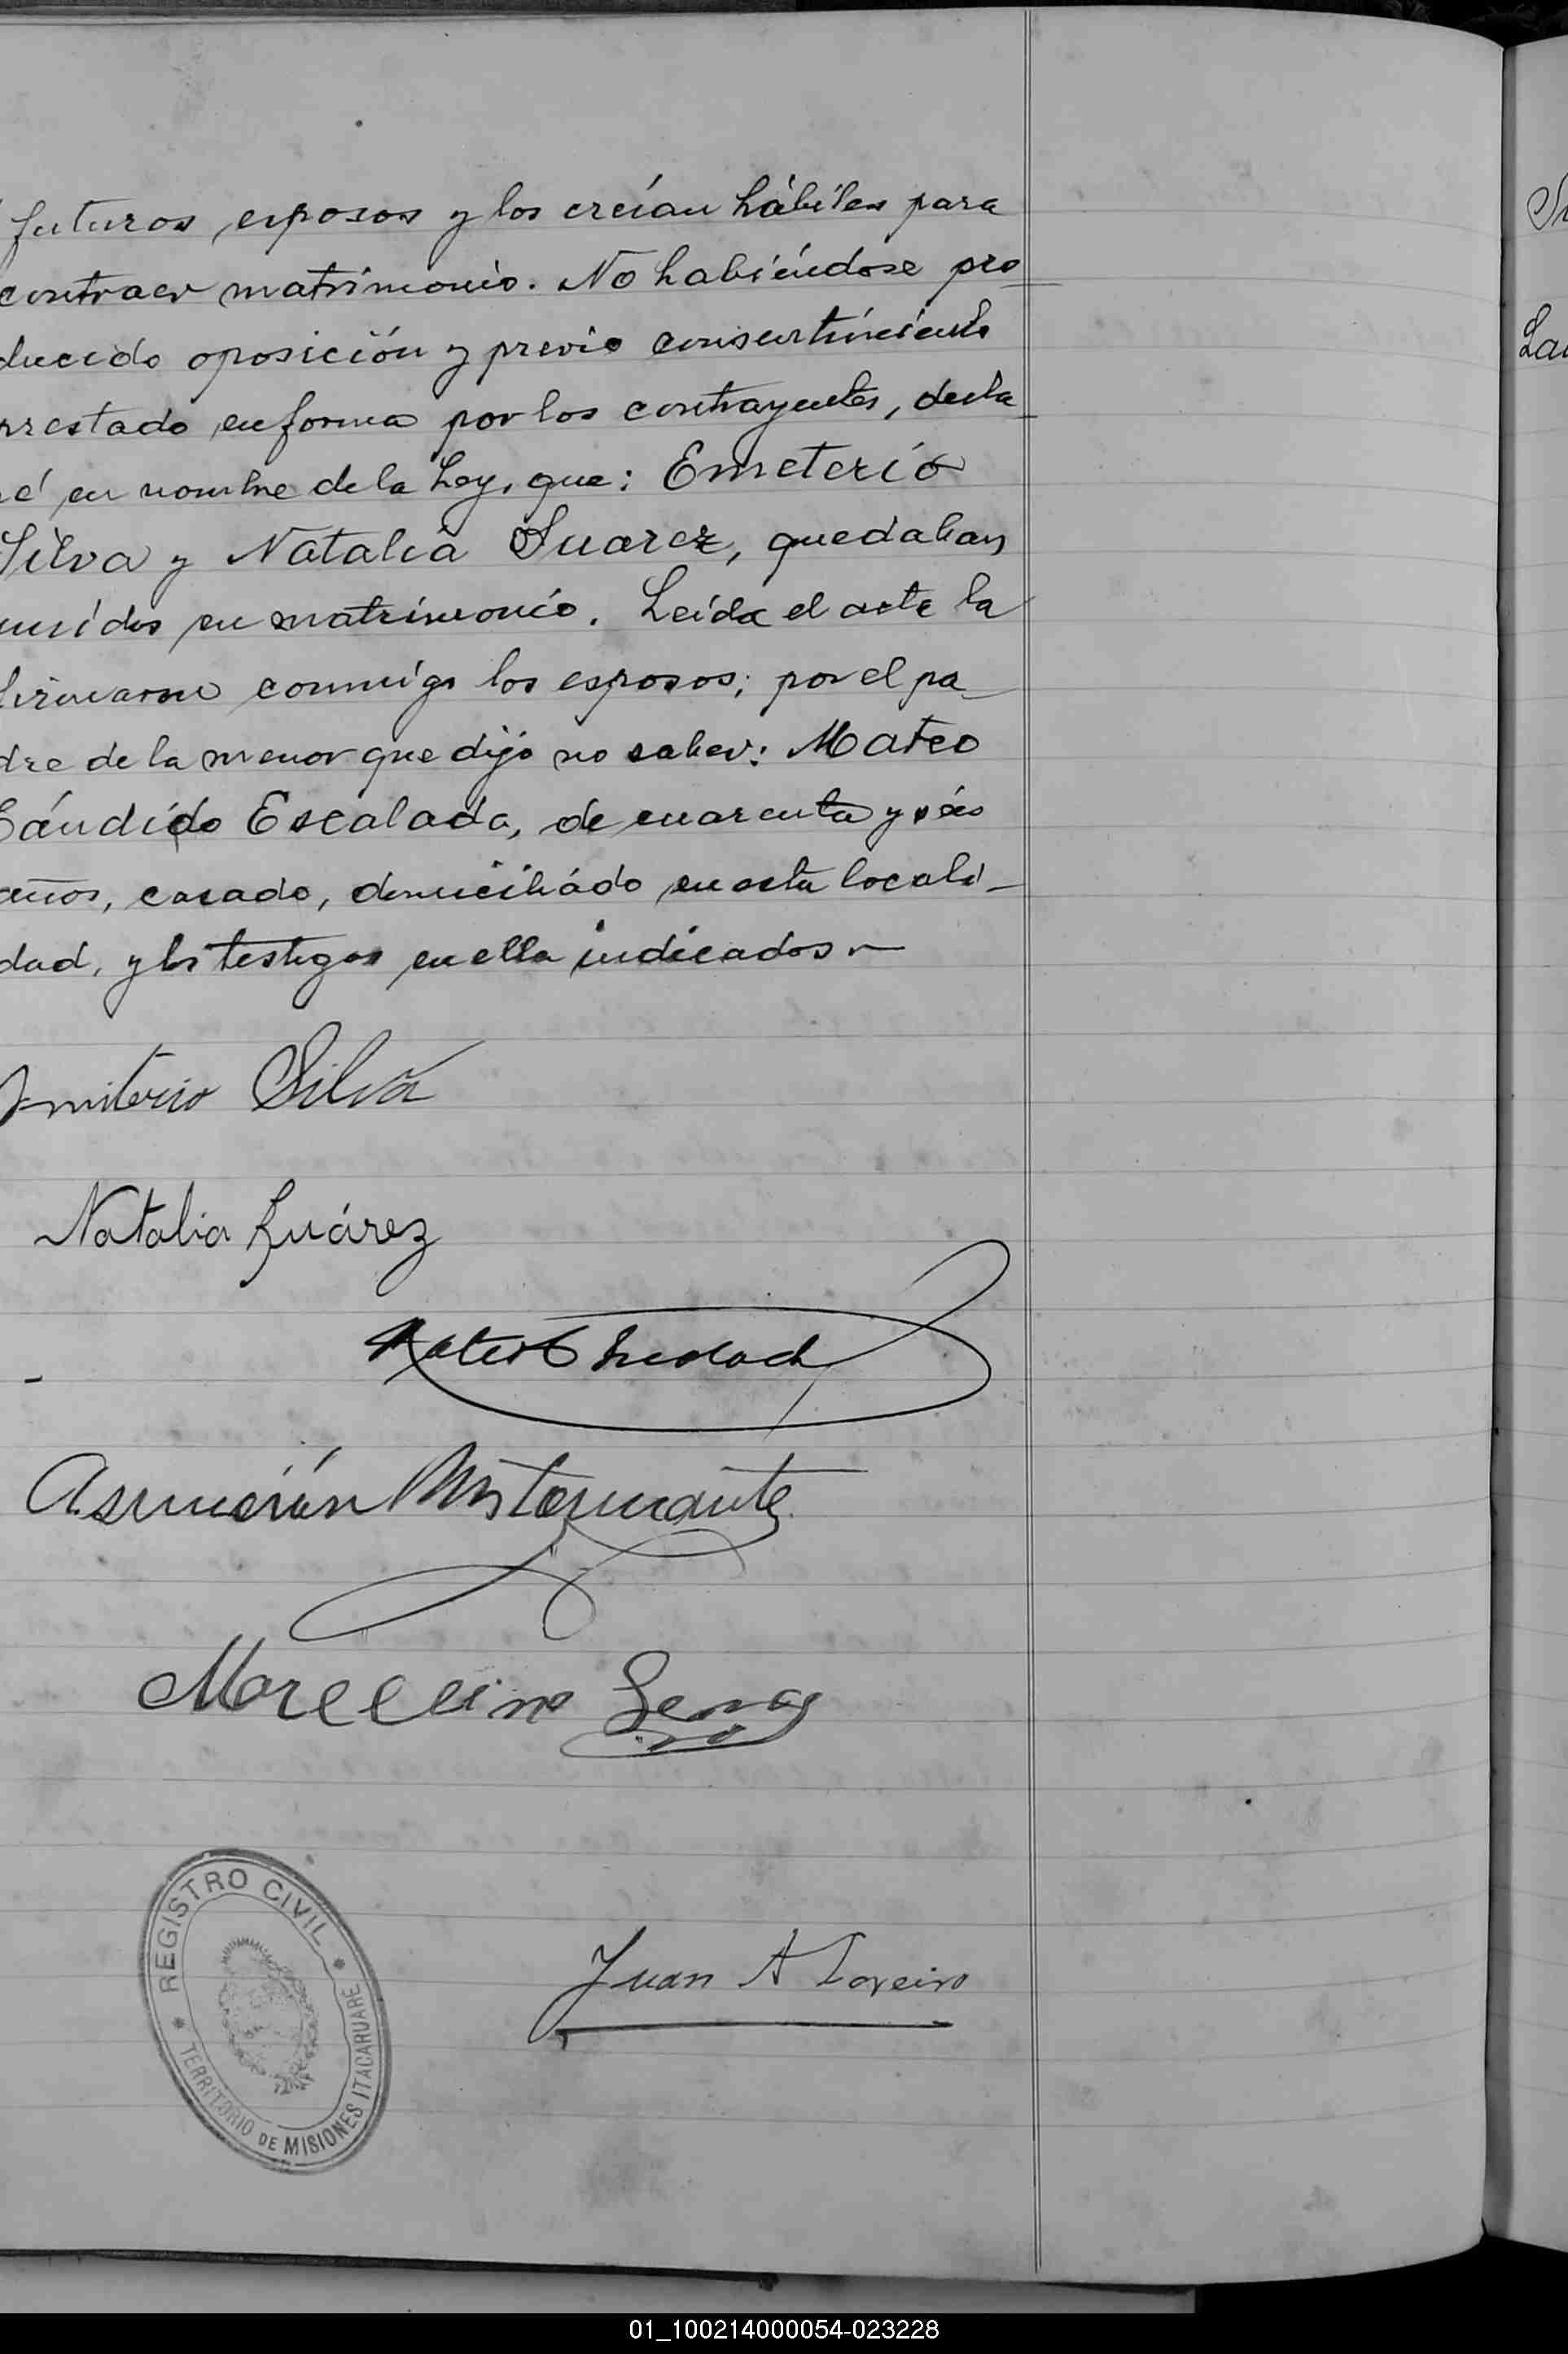 futuros esposos y los creían hábiles para
contraer matrimonio. No habiéndose pro
ducido oposición y previo consentimiento
prestado en forma por los contrayentes, decla
ré en nombre de la Ley, que: Emeterio
Silva y Natalia Suarez, quedaban
unidos en matrimonio. Leida el acta la
firmaron conmigo los esposos; por el pa_
dre de la menor que dijo no saber: Mateo
Cándido Escalada, de cuarenta y seis
años, casado, domiciliado en esta locali_
dad, y los testigos en ella indicados
Emiterio Silva
Natalia Suárez
Asunción
Marcelino
REGISTRO CIVIL
TERRITORIO DE MISIONES ITACARUARE
Juan A Loreiro
01_100214000054-023228